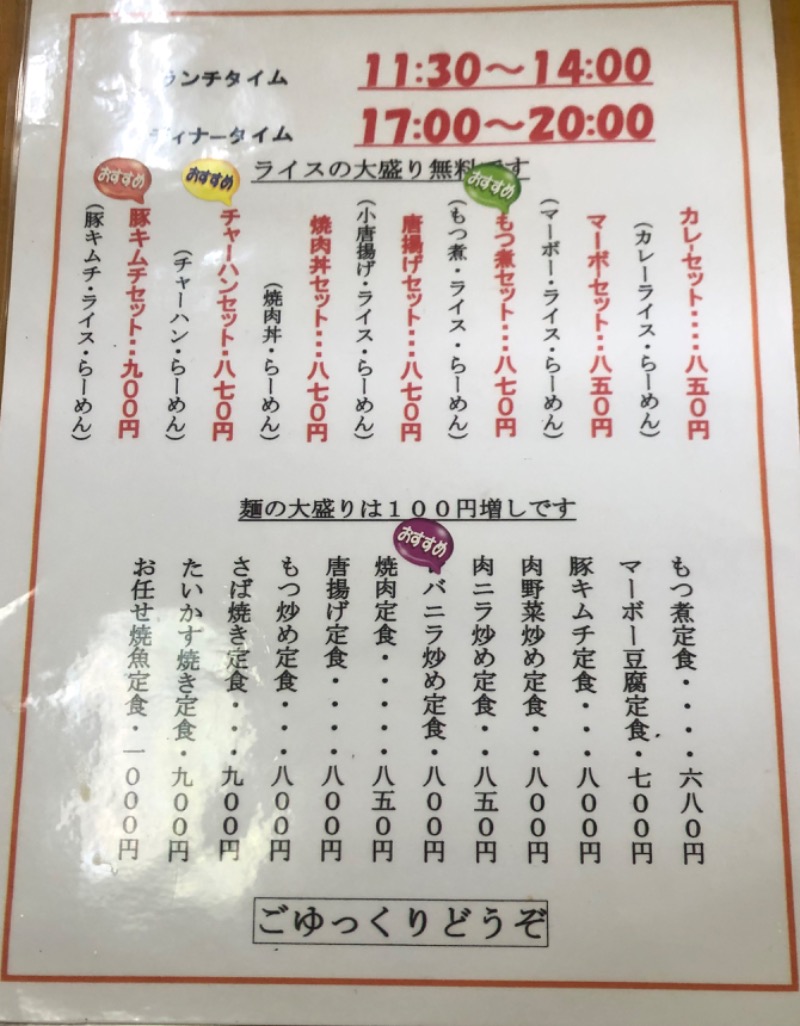 ランチタイム 11:30～14:00
ディナータイム 17:00～20:00
ライスの大盛り無料です
カレーセット・・・・八五0円
(カレーライス・らーめん)
マーボーセット・・八五0円
(マーボー・ライス・らーめん)
おすすめ
もつ煮セット・・・八七0円
(もつ煮・ライス・らーめん)
唐揚げセット・・八七0円
(小唐揚げ・ライス・らーめん)
焼肉丼セット・・・八七0円
(焼肉丼・らーめん)
おすすめ
チャーハンセット・八七0円
(チャーハン・らーめん)
おすすめ
豚キムチセット・・九00円
(豚キムチ・ライス・らーめん)
麺の大盛りは１００円増しです
もつ煮定食・・・・六八0円
マーボー豆腐定食・七00円
豚キムチ定食・・・八00円
肉野菜炒め定食・・八00円
肉ニラ炒め定食・・八五0円
おすすめ
バニラ炒め定食・八00円
焼肉定食・・・・・八五0円
唐揚げ定食・・・・八00円
もつ炒め定食・・・八00円
さば焼き定食・・・九00円
たいかす焼き定食・九00円
お任せ焼魚定食・一000円
ごゆっくりどうぞ